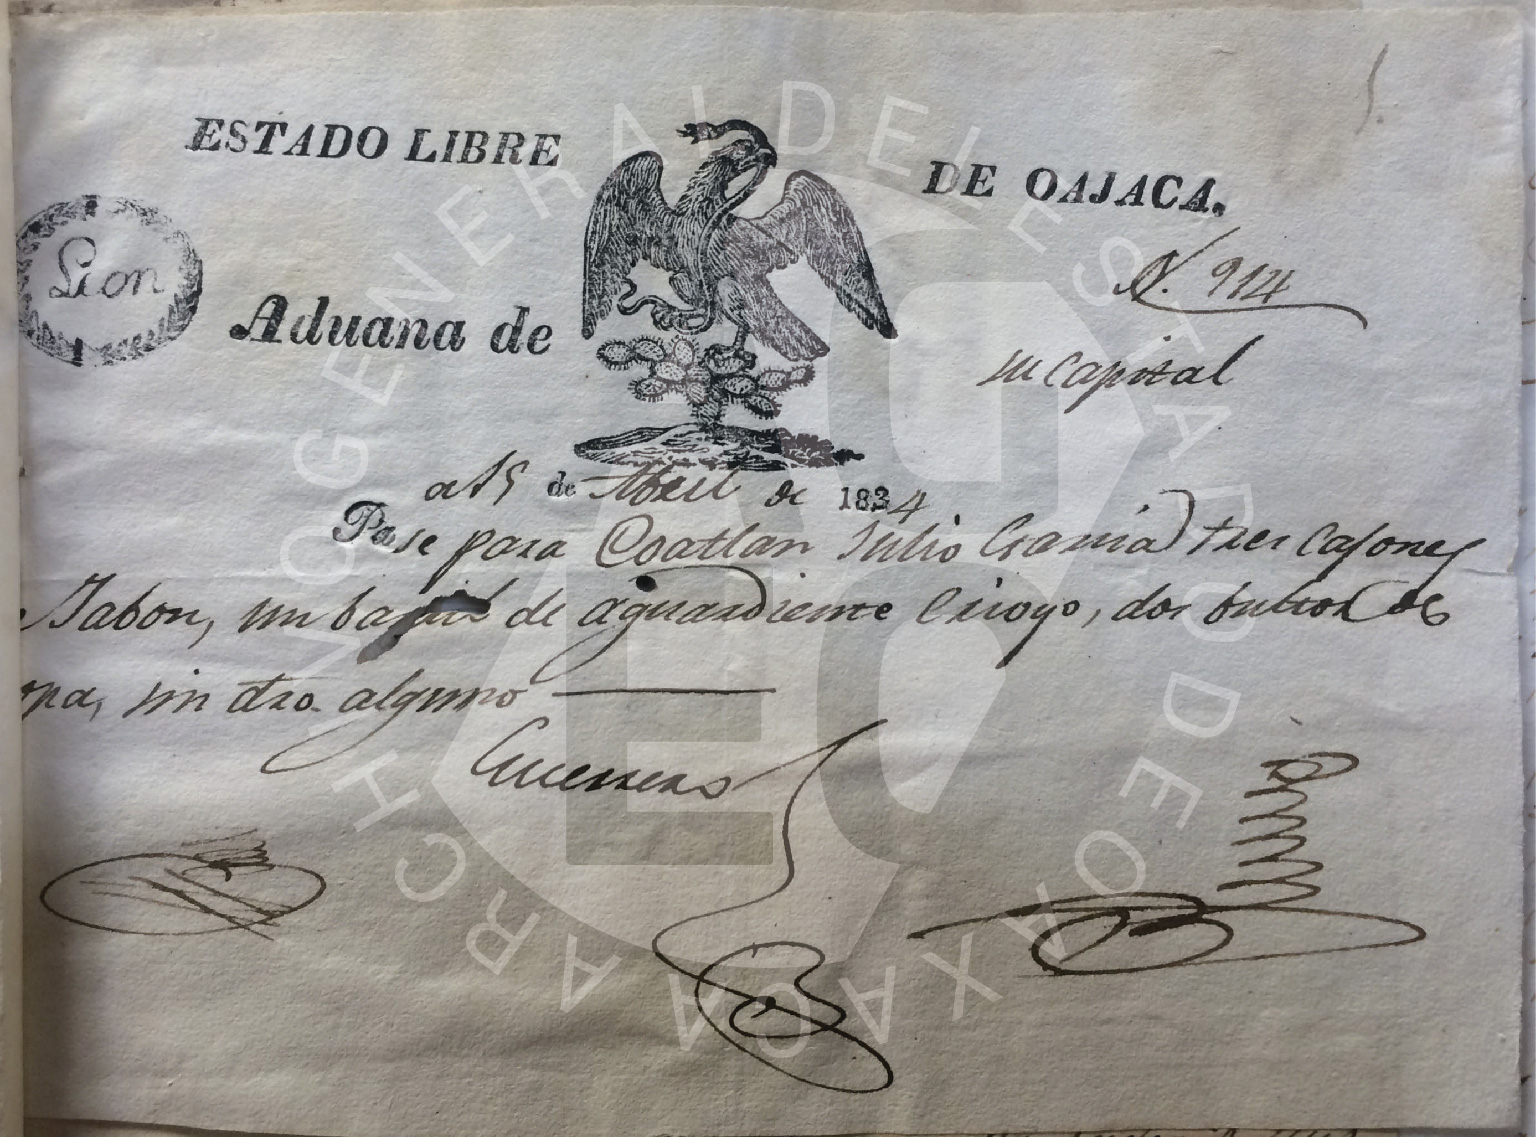 ESTADO LIBRE DE OAJACA.
Leon
N. 914
Aduana de su Capital
a 15 de Abril de 1834
Pase para Coatlan Julio Garcia tres Cajones
Jabon, un barril de aguardiente Crioyo, dos bultos de
opa, sin dro. alguno
Guerrero
ARCHIVO GENERAL DEL ESTADO DE OAXACA